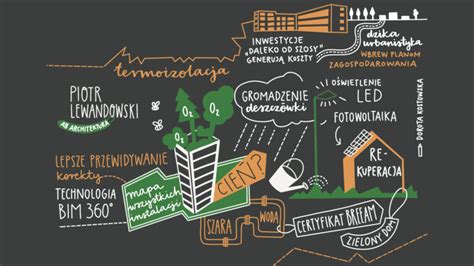 INWESTYCJE
„DALEKO OD SZOSY”
GENERUJĄ KOSZTY
dzika
urbanistyka
WBREW PLANOM
ZAGOSPODAROWANIA
termoizolacja
PIOTR
LEWANDOWSKI
AB ARCHITEKTURA
O₂
O₂
O₂
GROMADZENIE
deszczówki
I OŚWIETLENIE
LED
FOTOWOLTAIKA
DOROTA KOSTOWSKA
LEPSZE PRZEWIDYWANIE
korekty
TECHNOLOGIA
BIM 360°
mapa
wszystkich
instalacji
CIEŃ?
RE-
KUPERACJA
SZARA
WODA
CERTYFIKAT BREEAM
ZIELONY DOM